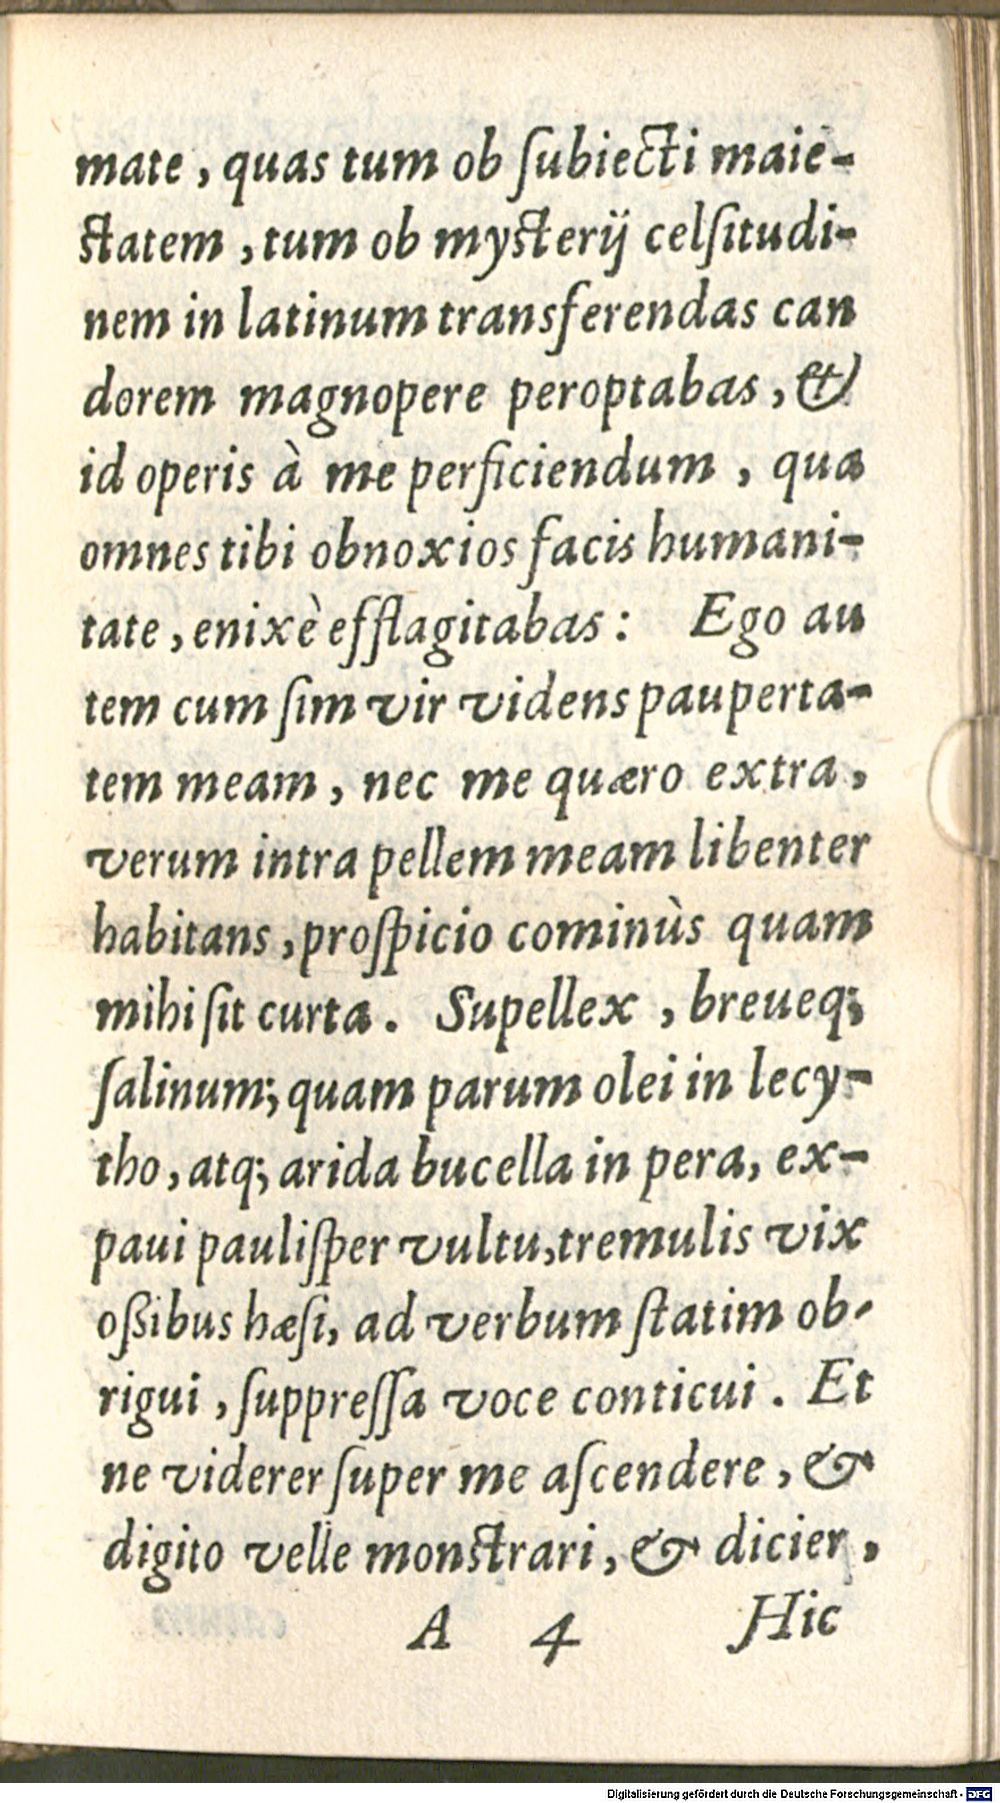 mate, quas tum ob ſubiecti maie-
ſtatem, tum ob myſterij celſitudi-
nem in latinum transferendas can
dorem magnopere peroptabas, &
id operis à me perficiendum, qua
omnes tibi obnoxios facis humani-
tate, enixè efflagitabas: Ego au
tem cum ſim vir videns pauperta-
tem meam, nec me quæro extra,
verum intra pellem meam libenter
habitans, proſpicio cominùs quam
mihi ſit curta. Supellex, breueq;
ſalinum; quam parum olei in lecy-
tho, atq; arida bucella in pera, ex-
paui pauliſper vultu, tremulis vix
oſsibus hæſi, ad verbum ſtatim ob-
rigui, ſuppreſſa voce conticui. Et
ne viderer ſuper me aſcendere, &
digito velle monſtrari, & dicier,
A 4 Hic
Digitalisierung gefördert durch die Deutsche Forschungsgemeinschaft - DFG